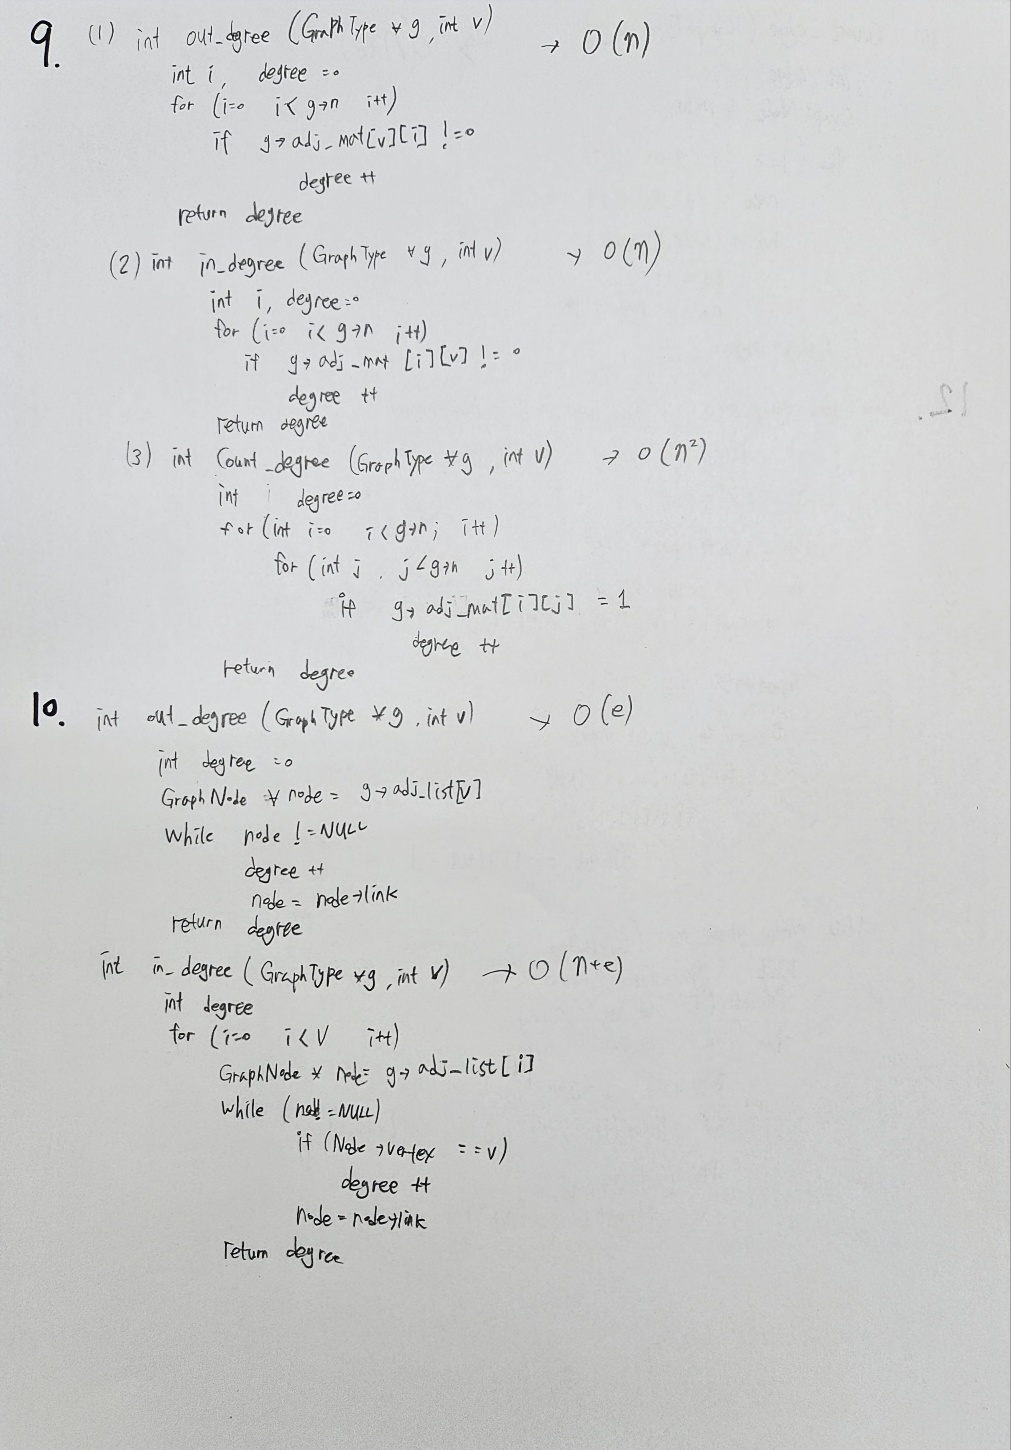 9. (1) int out_dgree (GraphType * g, int v) → O(n)
int i, degree =0
for (i=0 i< g→n i++)
if g→adj_mat[v][i] !=0
degree ++
return degree
(2) int in_degree (GraphType * g, int v) → O(n)
int i, degree=0
for (i=0 i< g→n i++)
if g→adj_mat [i][v] != 0
degree ++
return degree
(3) int Count_degree (GraphType *g, int v) → O(n²)
int i degree=0
for (int i=0 i<g→n; i++)
for (int j, j<g→n j++)
if g→ adj_mat[i][j] = 1
degree ++
return degree
10. int out_degree (GraphType *g, int v) → O(e)
int degree =0
GraphNode * node = g→adj_list[v]
While node != NULL
degree ++
node = node→link
return degree
int in_degree (GraphType *g, int v) → O(n+e)
int degree
for (i=0 i<V i++)
GraphNode * node= g→ adj_list[i]
while ( != NULL)
if (Node →vertex == v)
degree ++
node = node→link
return degree
12.